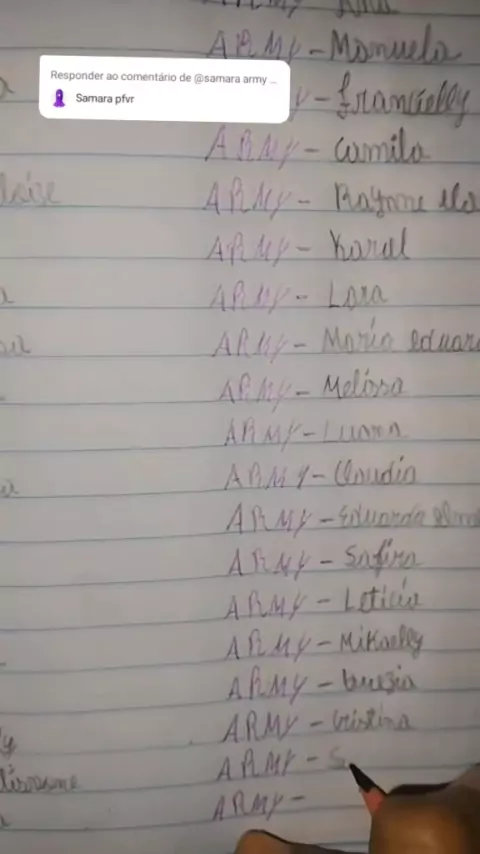 ARMY - Manuela
Responder ao comentário de @samara army ...
Samara pfvr
Y - Francielly
ARMY - Camila
ARMY - Rayane
ARMY - Karol
ARMY - Lara
ARMY - Maria eduar
ARMY - Melissa
ARMY - Luana
ARMY - Claudia
ARMY - Eduarda
ARMY - Safira
ARMY - Leticia
ARMY - Mikaelly
ARMY -
ARMY - Cristina
ARMY - S
ARMY -